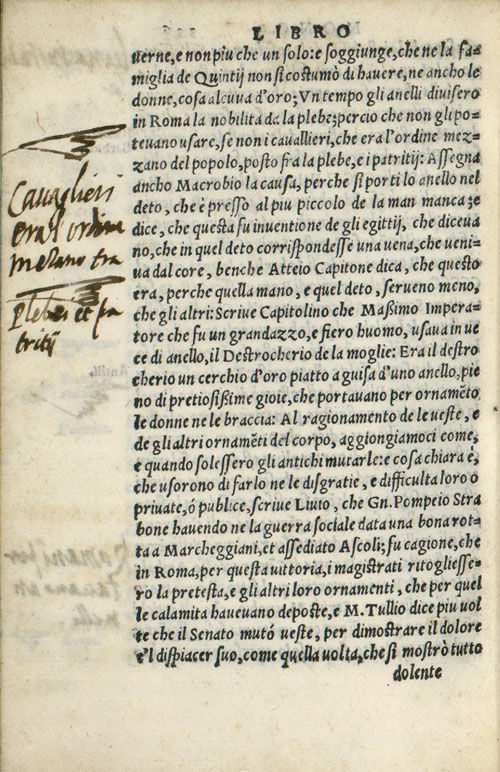 LIBRO
uerne, e non piu che un solo: e soggiunge, che ne la fa-
miglia de Quintij non si costumò di hauere, ne ancho le
donne, cosa alcuua d'oro; Vn tempo gli anelli diuisero
in Roma la nobilita da la plebe; percio che non gli po-
teuano usare, se non i cauallieri, che era l'ordine mez-
zano del popolo, posto fra la plebe, e i patritij: Assegna
ancho Macrobio la causa, perche si porti lo anello nel
deto, che è presso al piu piccolo de la man manca; e
dice, che questa fu inuentione de gli egittij, che diceua
no, che in quel deto corrispondesse una uena, che ueni-
ua dal core, benche Atteio Capitone dica, che questo
era, perche quella mano, e quel deto, serueno meno,
che gli altri: Scriue Capitolino che Maßimo Impera-
tore che fu un grandazzo, e fiero huomo, usaua in ue
ce di anello, il Destrocherio de la moglie: Era il destro
cherio un cerchio d'oro piatto a guisa d'uno anello, pie
no di pretiosißime gioie, che portauano per ornamẽto
le donne ne le braccia: Al ragionamento de le ueste, e
de gli altri ornamẽti del corpo, aggiongiamoci come,
e quando solessero gli antichi mutarle: e cosa chiara è,
che usorono di farlo ne le disgratie, e difficulta loro ò
priuate, ó publice, scriue Liuio, che Gn. Pompeio Stra
bone hauendo ne la guerra sociale data una bona rot-
ta a Marcheggiani, et assediato Ascoli; fu cagione, che
in Roma, per questa uittoria, i magistrati ritogliesse-
ro la pretesta, e gli altri loro ornamenti, che per quel
le calamita haueuano deposte, e M. Tullio dice piu uol
te che il Senato mutó ueste, per dimostrare il dolore
e'l dispiacer suo, come quella uolta, che si mostrò tutto
dolente
Cauaglieri
era l ordine
mezano tra
Plebei et pa
tritij